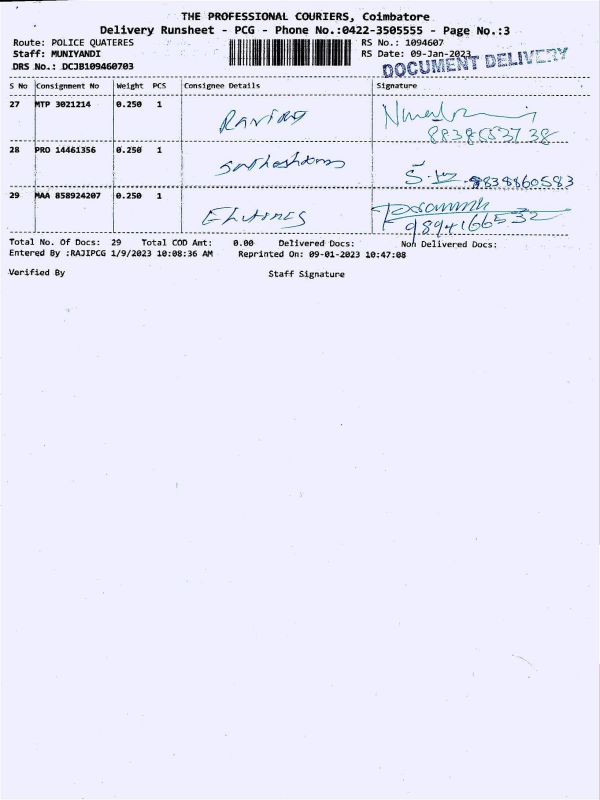 THE PROFESSIONAL COURIERS, Coimbatore
Delivery Runsheet - PCG - Phone No.:0422-3505555 - Page No.:3
Route: POLICE QUATERES RS No.: 1094607
Staff: MUNIYANDI RS Date: 09-Jan-2023
DRS No.: DCJB109460703 DOCUMENT DELIVERY
S No Consignment No Weight PCS Consignee Details Signature
27 MTP 3021214 0.250 1
28 PRO 14461356 0.250 1
9838860583
29 MAA 858924207 0.250 1
9894166532
Total No. Of Docs: 29 Total COD Amt: 0.00 Delivered Docs: Non Delivered Docs:
Entered By :RAJIPCG 1/9/2023 10:08:36 AM Reprinted On: 09-01-2023 10:47:08
Verified By Staff Signature